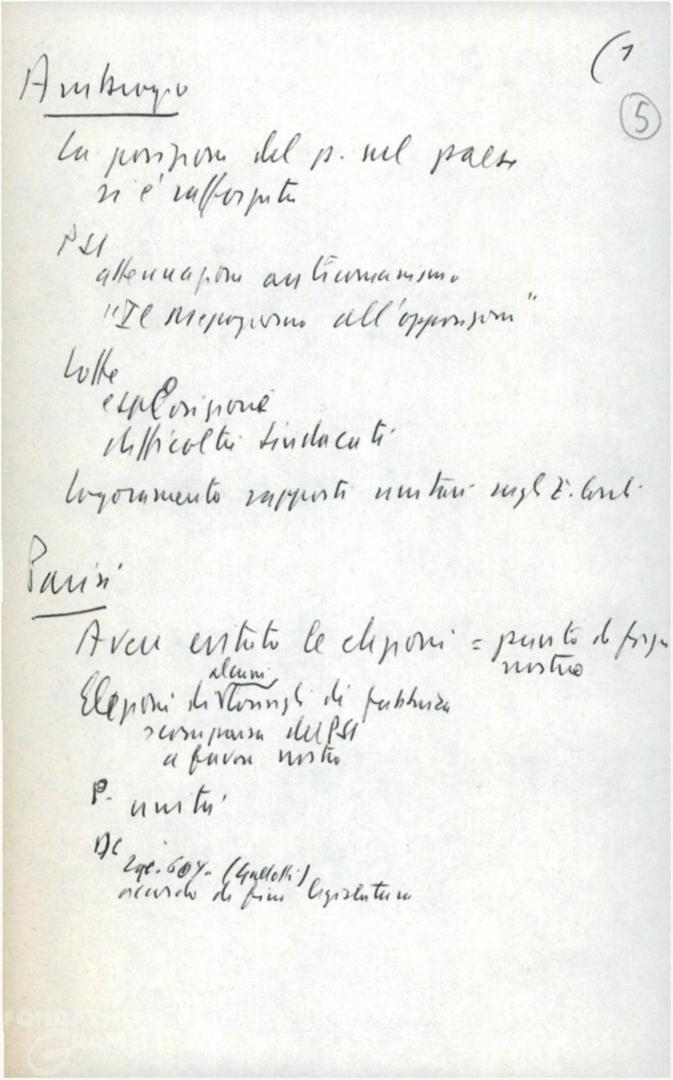 (1
5
Ambrogio
La posizione del p. nel paese
si è rafforzata
PSI
attenuazione anticomunismo
"Il mezzogiorno all'opposizione"
Lotte
esplosione
difficoltà sindacati
Logoramento rapporti unitari negli E. locali
Parisi
Aver evitato le elezioni = punto di forza
nostro
Elezioni di alcuni consigli di fabbrica
scomparsa del PSI
a favore nostro
P. unità
DC
(Galloni)
accordo di fine legislatura
FONDAZIONE
GRAMSCI